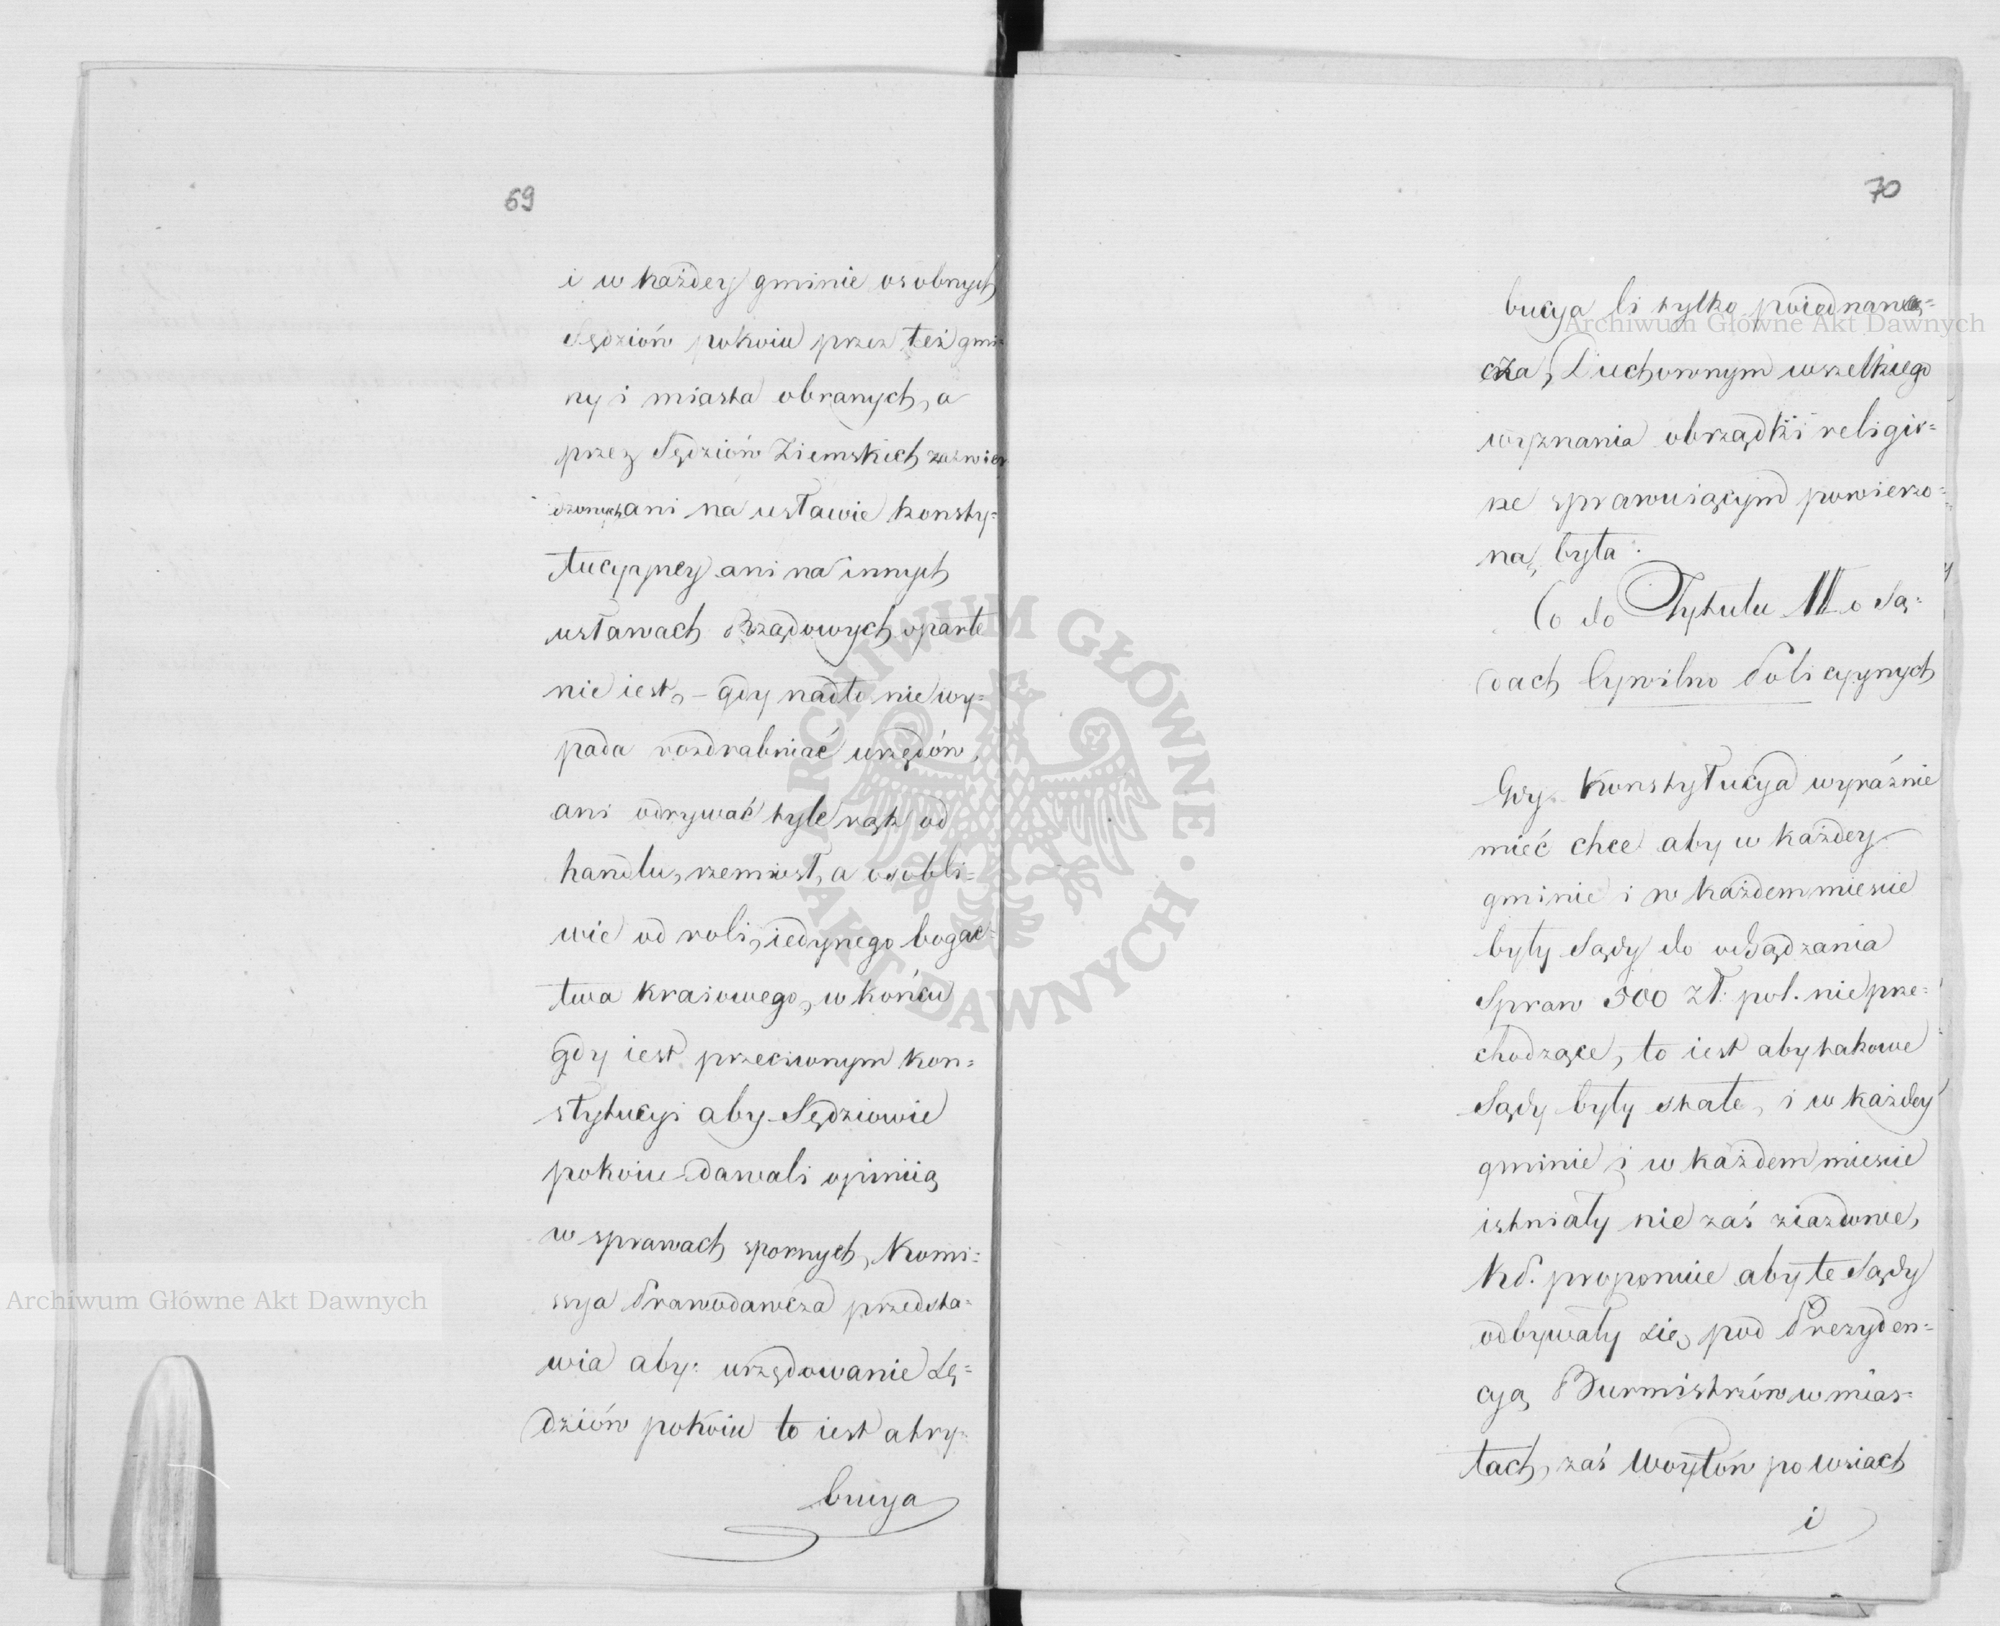 69
i w każdey gminie osobnych
Sędziów pokoiu przez też gmi-
ny i miasta obranych, a
przez Sędziów Ziemskich zatwier
dzonych ani na ustawie konsty-
tucyyney ani na innych
ustawach Rządowych oparte
nie iest, – gdy nadto nie wy-
pada rozdrabniać urzędów,
ani odrywać tyle rąk od
handlu, rzemiosł, a osobli-
wie od roli, iedynego bogac-
twa kraiowego, w końcu
gdy iest przeciwnym kon-
stytucyi aby Sędziowie
pokoiu dawali opiniią
w sprawach spornych, Komi-
ssya Prawodawcza przedsta-
wia aby: urzędowanie Sę-
dziów pokoiu to iest atry-
bucya
70
bucya li tylko poiednaw-
cza, Duchownym wszelkiego
wyznania obrządki religii-
ne sprawuiącym powierzo-
na, była.
Co do Tytułu III o Są-
dach Cywilno Policyynych
Gdy Konstytucya wyraźnie
mieć chce aby w każdey
gminie i w każdem mieście
były Sądy do osądzania
Spraw 500 zł: pol. nie prze-
chodzące, to iest aby takowe
Sądy były stałe, i w każdey
gminie i w każdem mieście
istniały nie zaś ziazdowe,
KP. proponuie aby te Sądy
odbywały się pod Prezyden-
cyą Burmistrzów w mias-
tach, zaś Woytów po wsiach
i
Archiwum Główne Akt Dawnych
Archiwum Główne Akt Dawnych
ARCHIWUM GŁÓWNE · AKT DAWNYCH ·